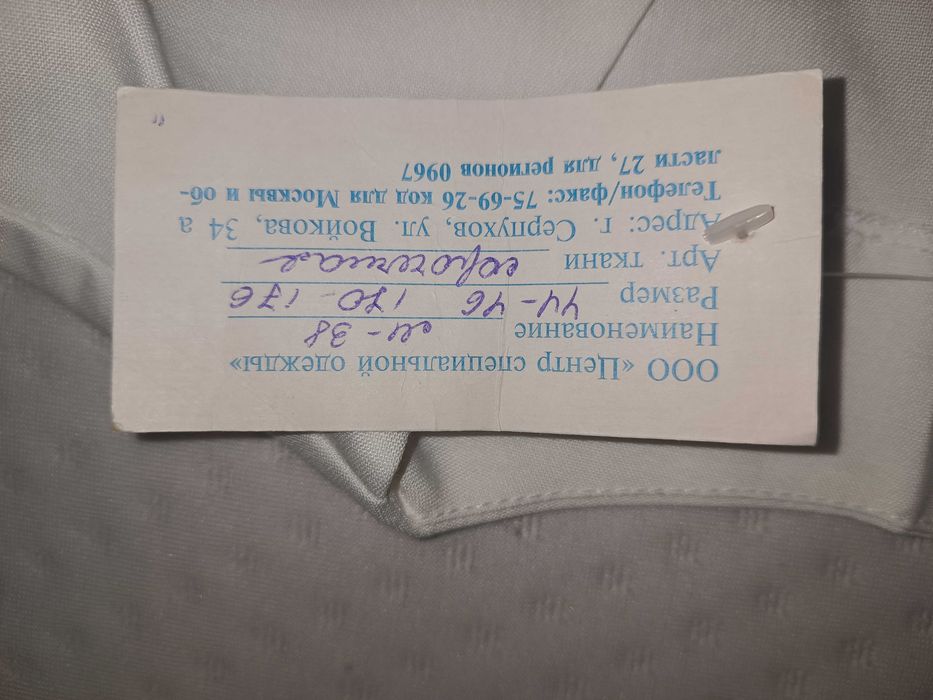 ООО «Центр специальной одежды»
Наименование м-38
Размер 44-46 170-176
Арт. ткани сорочечная
Адрес: г. Серпухов, ул. Войкова, 34 а
Телефон/факс: 75-69-26 код для Москвы и об-
ласти 27, для регионов 0967